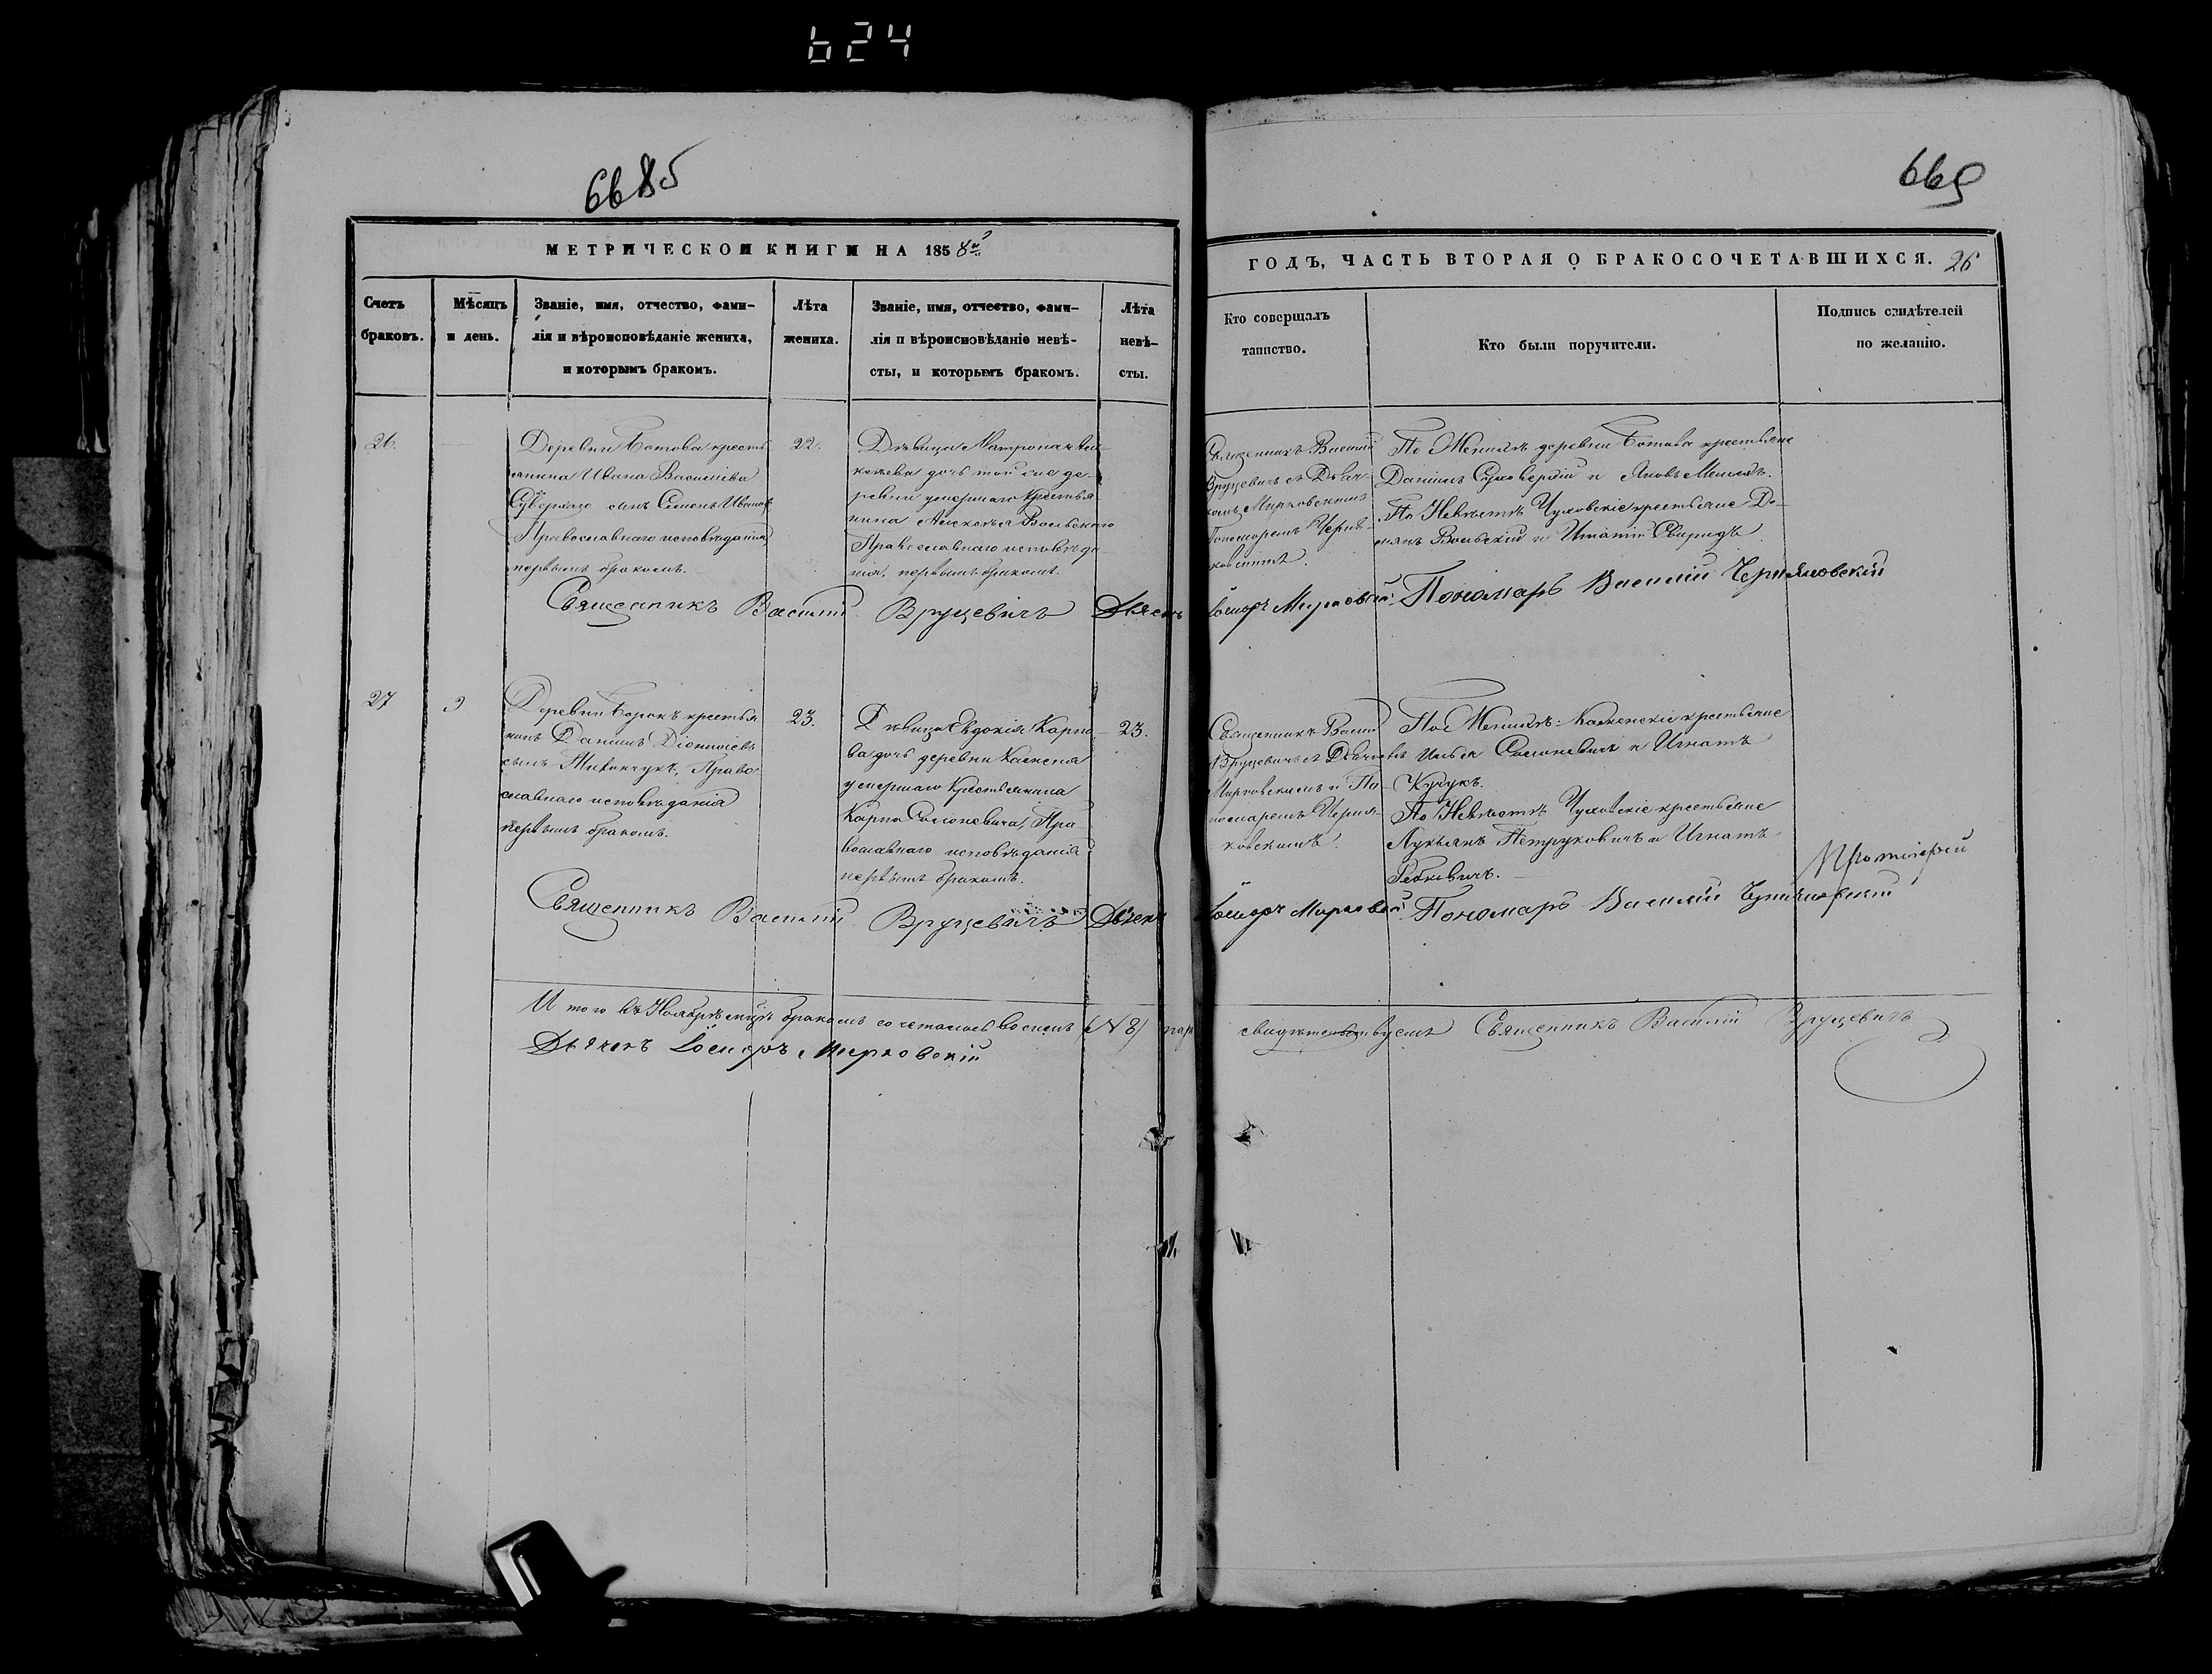 624
6685
669
МЕТРИЧЕСКОЙ КНИГИ НА 1858й
ГОДЪ, ЧАСТЬ ВТОРАЯ О БРАКОСОЧЕТАВШИХСЯ. 26
Счетъ
браковъ.
Мѣсяцъ
и день.
Званіе, имя, отчество, фами-
лія и вѣроисповѣданіе жениха,
и которымъ бракомъ.
Лѣта
жениха.
Званіе, имя, отчество, фами-
лія и вѣроисповѣданіе невѣ-
сты, и которымъ бракомъ.
Лѣта
невѣ-
сты.
Кто совершалъ
таинство.
Кто были поручители.
Подпись свидѣтелей
по желанію.
26.
Деревни Ботова кресть
янина Ивана Василіева
сынъ Семенъ Ивановъ
Православнаго исповѣданія,
первымъ бракомъ.
22.
Дѣвица Матрона
дочь той же де-
ревни умершаго крестья
нина Вольскаго
Православнаго исповѣда
нія, первымъ бракомъ.
Священникъ Василій
Вруцевичъ съ Дьяч-
комъ Мирковскимъ
Пономаремъ Черня-
ковскимъ.
По Женихѣ деревни Ботова крестьяне
Даніилъ Суховерхій и Яковъ
По Невѣстѣ Чуховскіе крестьяне Де-
Вольскій и Игнатій Свиридъ
Священникъ Василій Вруцевичъ Дьячекъ Іосифъ Мирковскій Пономарь Василій Черняковскій
27
9
Деревни Борокъ крестья
нинъ Даніилъ Діонисіевъ
сынъ Право
славнаго исповѣданія
первымъ бракомъ.
23.
Дѣвица Евдокія Карпо
ва дочь деревни Каменя
умершаго Крестьянина
Карпа Саленевича, Пра
вославнаго исповѣданія
первымъ бракомъ.
23.
Священникъ Василій
Вруцевичъ съ Дьячкомъ
Мирковскимъ и По-
номаремъ Черня-
ковскимъ.
По Женихѣ: Каменскіе крестьяне
Илья Саленевичъ и Игнатъ
Кучукъ.
По Невѣстѣ Чуховскіе крестьяне
Лукьянъ Петруковичъ и Игнатъ
Ребковичъ.
Протоіерей
Священникъ Василій Вруцевичъ Дьячекъ Іосифъ Мирковскій Пономарь Василій Черняковскій
Итого въ Ноябрѣ мцѣ бракомъ сочеталось восемь (N 8) паръ свидѣтельствуемъ Священникъ Василій Вруцевичъ
Дьячекъ Іосифъ Мирковскій